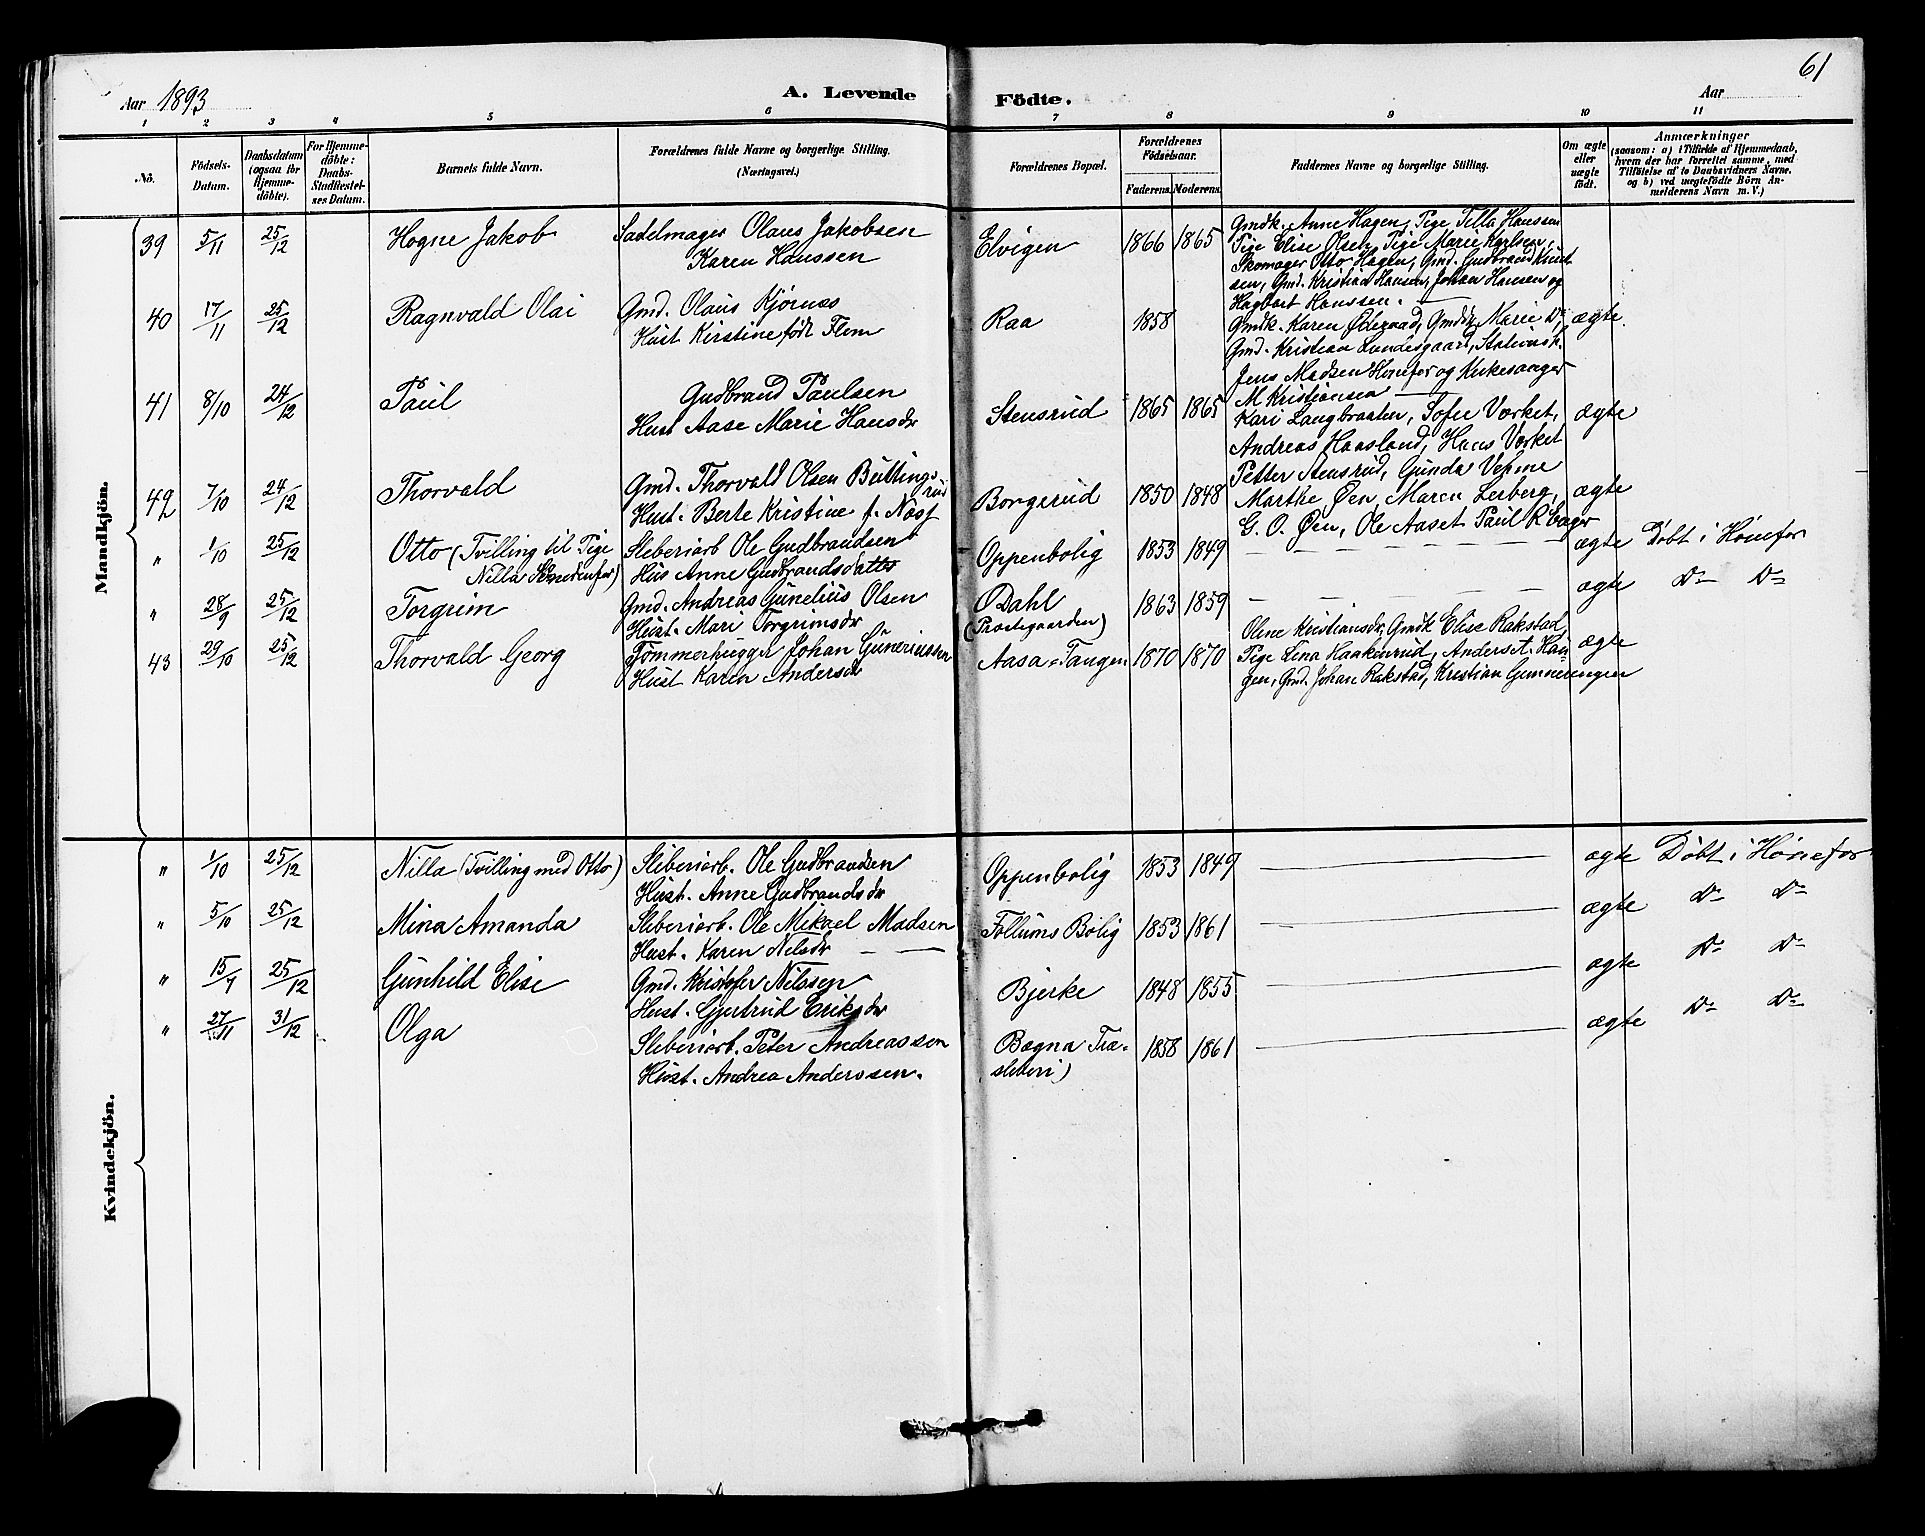 61
Aar 1893 A. Levende Födte. Aar
1 2 3 4 5 6 7 8 9 10 11
No. Födsels-Datum. Daabsdatum (ogsaa for Hjemme-döbte). For Hjemme-döbte: Daabs-Stadfæstel-ses Datum. Barnets fulde Navn. Forældrenes fulde Navne og borgerlige Stilling. (Næringsvei.) Forældrenes Bopæl. Forældrenes Födselsaar. Faderens. Moderens. Faddernes Navne og borgerlige Stilling. Om ægte eller uægte født. Anmærkninger (saasom: a) i Tilfælde af Hjemmedaab, hvem der har forrettet samme, med Tilføielse af to Daabsvidners Navne, og b) ved uægtefödte Börn An-melderens Navn m. V.)
Mandkjön.
39 5/11 25/12 Hogne Jakob Sadelmager Olaus Jakobsen Elvigen 1866 1865 Gmdk. Anne Hagen, Pige Tilla Hanssen
Karen Hanssen Pige Elise Olsen, Pige Marie Karlsen,
Skomager Otto Hagen, Gmd. Gudbrand Knut
sen, Gmd. Kristian Hansen, Johan Hansen og
Hagbart Hanssen.
40 17/11 25/12 Ragnvald Olai Gmd. Olaus Kjørnso Raa 1858 Gmdk. Karen Ødegaad, Gmdk Marie Do, ægte
Hust Kirstine født Flom Gmd. Kristian Lundesgaard, Stationsk.
Jens Madsen Hønefos og Kirkesanger
M Kristiansen
41 8/10 24/12 Paul Gudbrand Paulsen Stensrud 1865 1865 Kari Langbraaten, Sofie Værket, ægte
Hust Aase Marie Hansdr Andreas Haasland, Hans Værket
Petter Stensrud, Gunda Vehme
42 7/10 24/12 Thorvald Gmd. Thorvald Olsen Buttings-rud Borgerud 1850 1848 Marthe Øen, Maren Lerberg, ægte
Hust. Berte Kristine f. Næss G. O. Øen, Ole Aaset Paul R Eager
" 1/10 25/12 Otto (Tvilling til Pige Sliberiarb Ole Gudbrandsen Oppenbolig 1853 1849 — ægte Døbt i Hønefos
Nilla Se nedenfor) Hus Anne Gudbrandsdatter
" 28/9 25/12 Torgrim Gmd. Andreas Gunelius Olsen Dahl 1863 1859 — ægte Do Do
Hust. Mari Torgrimsdr (Prestegaarden)
43 29/10 25/12 Thorvald Georg Tømmerhugger Johan Guneriussen Aasa-Tangen 1870 1870 Oline Kristiansdr, Gmdk Elise Rakstad, ægte
Hust Karen Andersdr Pige Lina Haakenrud, Anders T. Hau-
gen, Gmd. Johan Rakstad, Kristian Gunnerengen
Kvindekjön.
" 1/10 25/12 Nilla (Tvilling med Otto) Sliberiarb. Ole Gudbrandsen Oppenbolig 1853 1849 — ægte Døbt i Hønefos
Hust. Anne Gudbrandsdr
" 5/10 25/12 Mina Amanda Sliberiarb. Ole Mikael Madsen Follums Bolig 1853 1861 — ægte Do Do
Hust. Karen Nilsdr
" 15/7 25/12 Gunhild Elise Gmd. Kristofer Nilssen Bjerke 1848 1855 — ægte Do Do
Hust. Gjertrud Eriksdr
" 27/11 31/12 Olga Sliberiarb. Peter Andreassen Bægna Træ- 1858 1861 — ægte Do Do
Hust. Andrea Anderssen. sliberi)